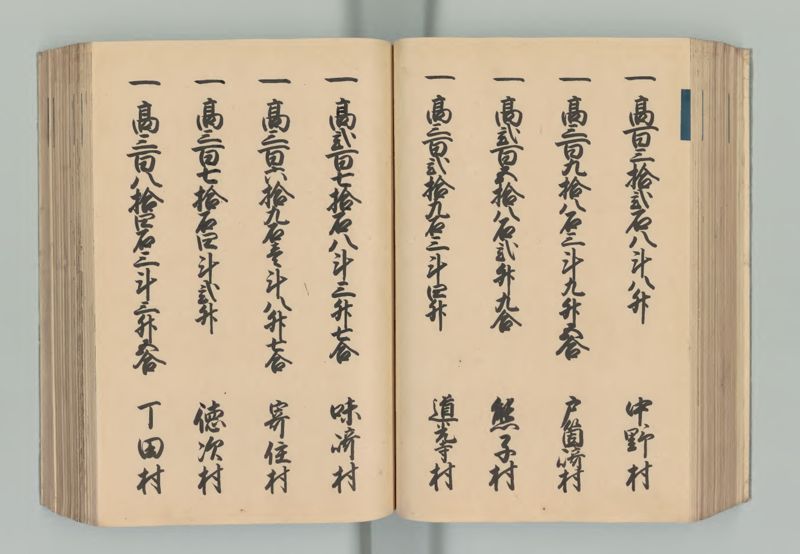 一 高百三拾弐石八斗八升 中野村
一 高三百九拾八石三斗九升五合 戸箇崎村
一 高弐百五拾八石弐升九合 熊子村
一 高三百弐拾九石三斗四升 道光寺村
一 高弐百七拾石八斗三升七合 味崎村
一 高三百六拾九石壱斗八升七合 寄住村
一 高三百七拾石四斗弐升 徳次村
一 高三百八拾四石三斗三升五合 丁田村